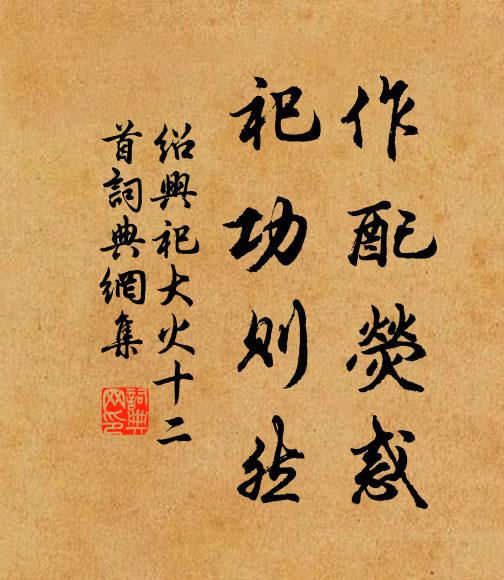 作配熒惑
祀功則然
紹興祀大火十二
首詞典網集
詞典
网印